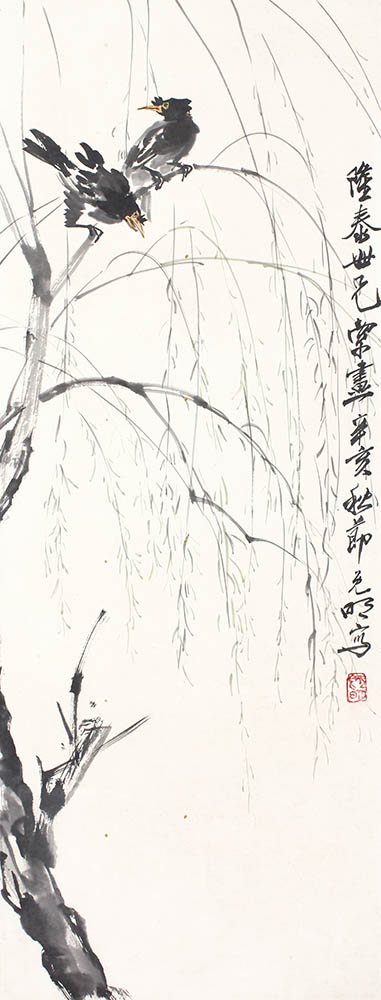 隆泰世兄索畫辛亥秋節克明寫